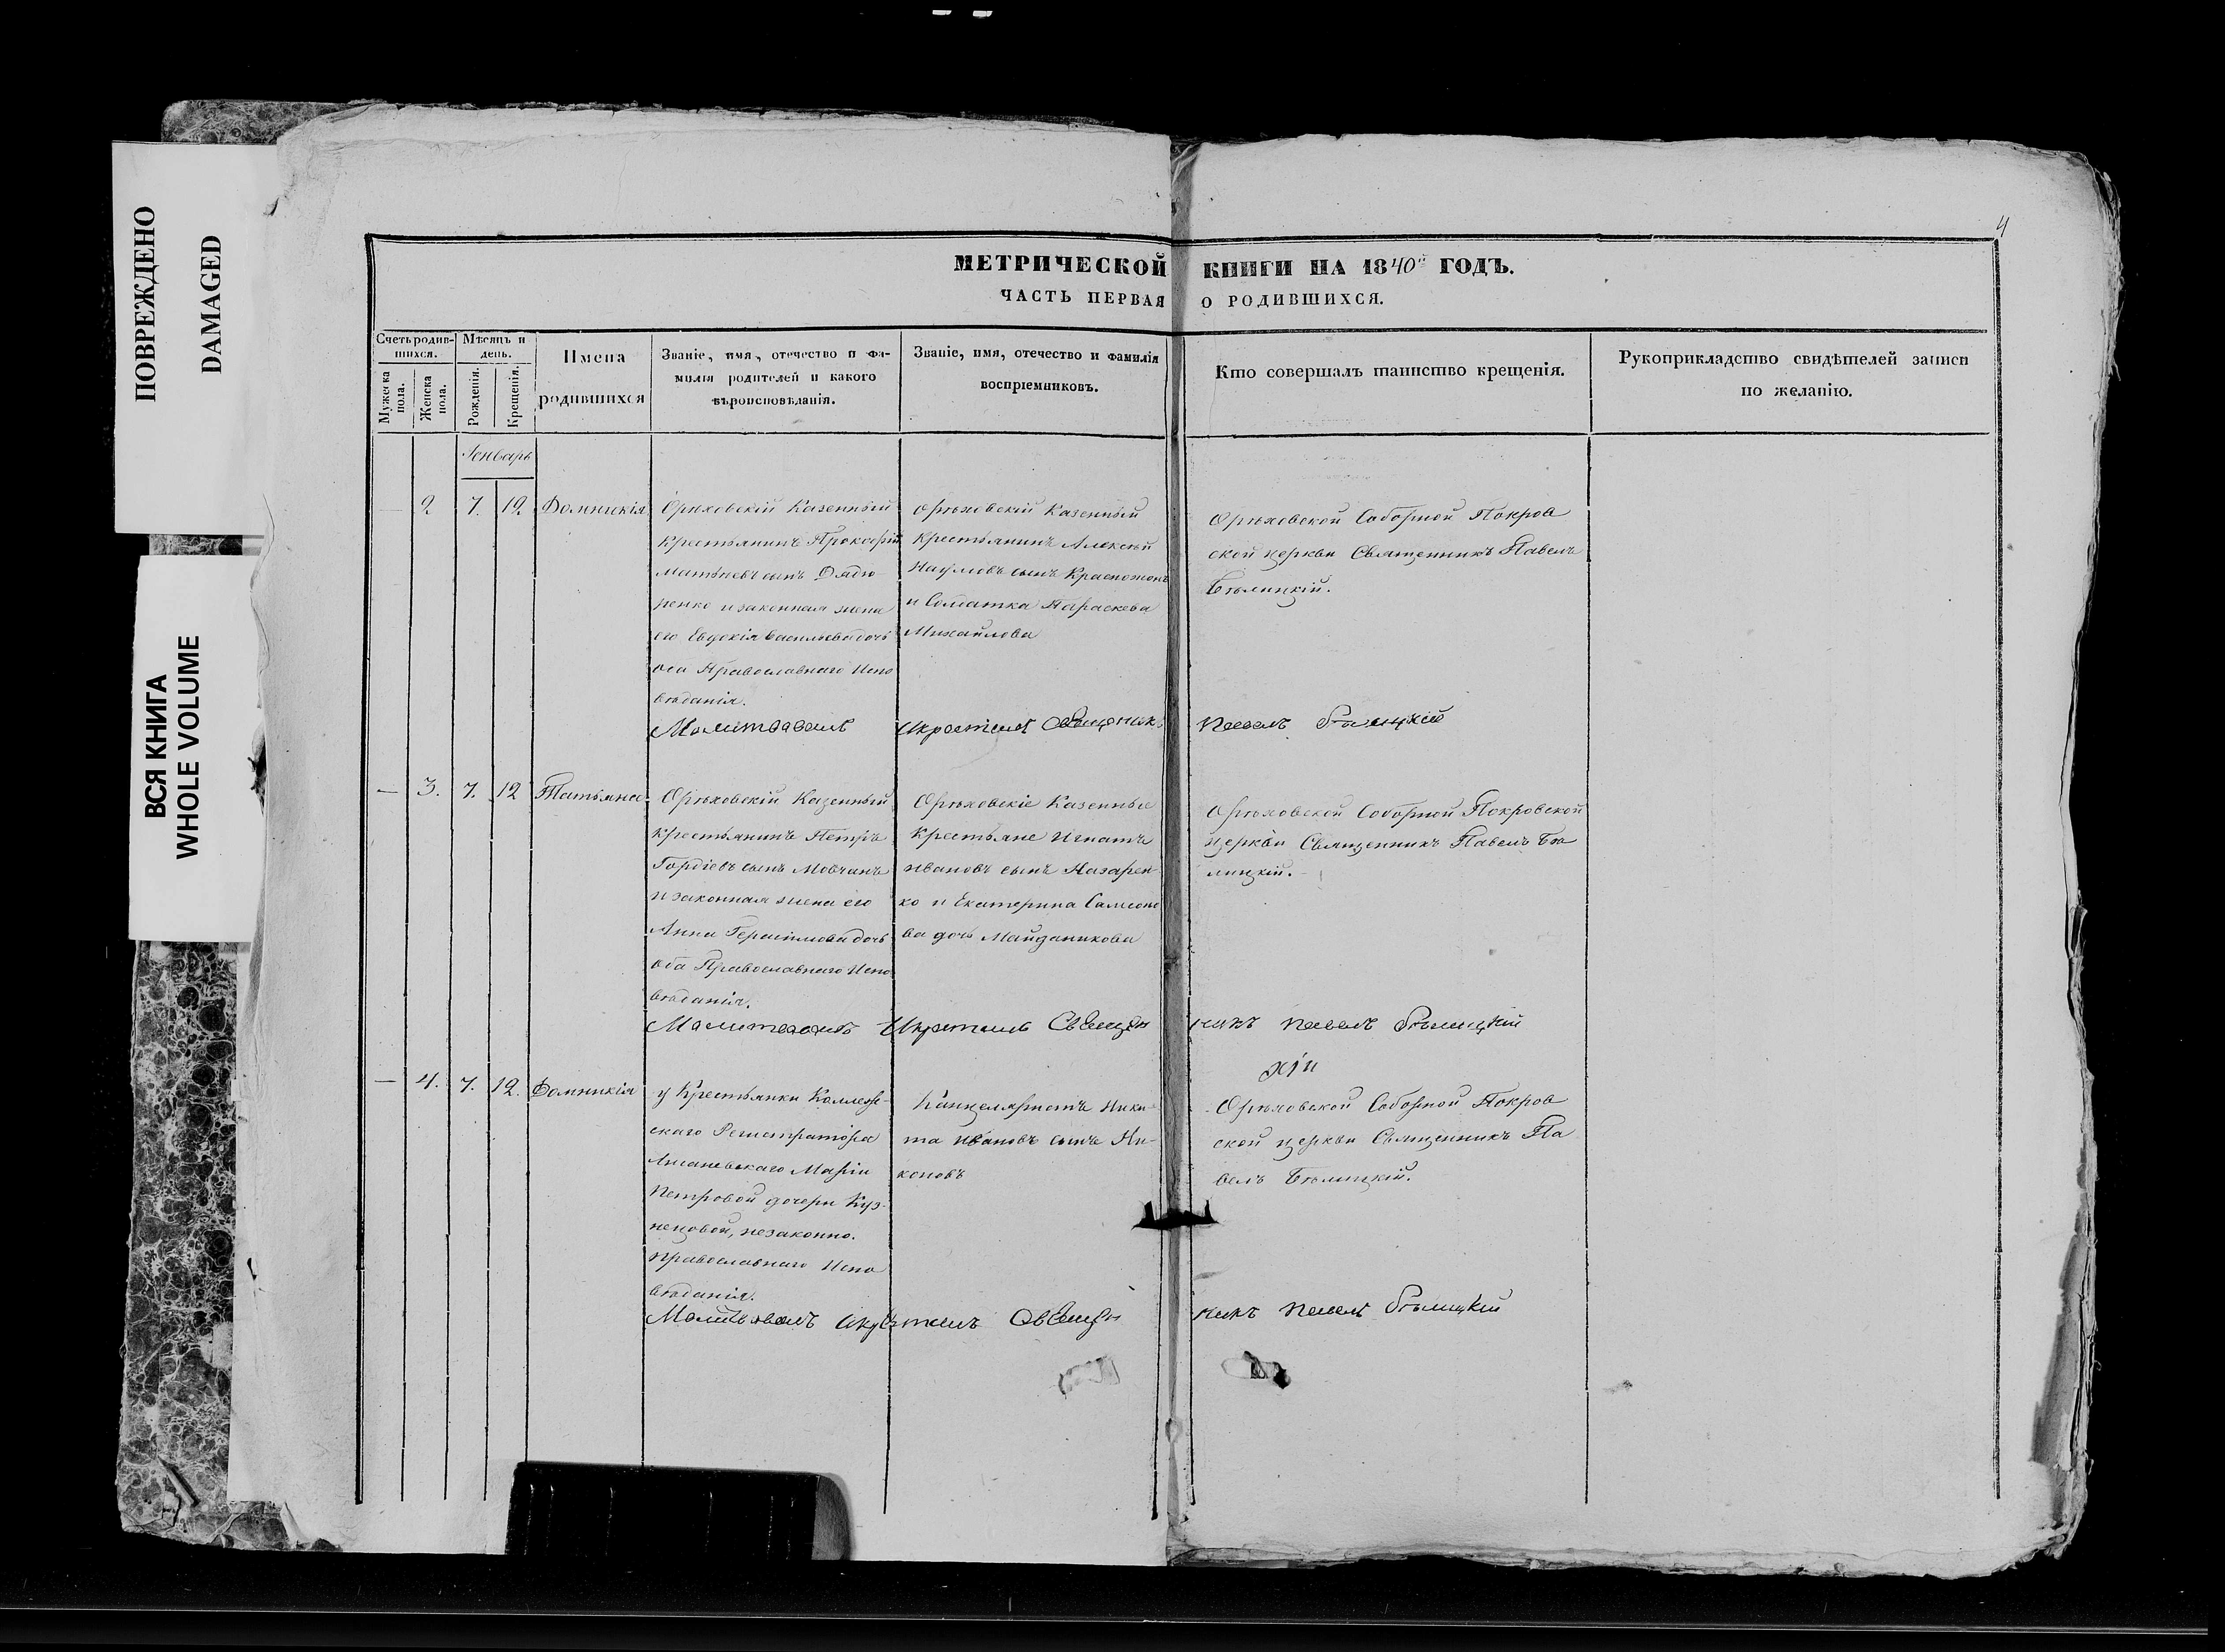 ПОВРЕЖДЕНО
DAMAGED
ВСЯ КНИГА
WHOLE VOLUME
4
МЕТРИЧЕСКОЙ КНИГИ НА 1840й ГОДЪ.
ЧАСТЬ ПЕРВАЯ О РОДИВШИХСЯ.
Счетъ родив-
шихся.
Мужеска
пола.
Женска
пола.
Мѣсяцъ и
день.
Рожденія.
Крещенія.
Имена
родившихся
Званіе, имя, отечество и фа-
милія родителей и какого
вѣроисповѣданія.
Званіе, имя, отечество и фамилія
воспріемниковъ.
Кто совершалъ таинство крещенія.
Рукоприкладство свидѣтелей записи
по желанію.
Генварь
2. 7. 12. Домникія
Орѣховскій Казенный
Крестьянинъ Прокофій
Матвѣевъ сынъ Дядю-
ренко и законная жена
его Евдокія Васильева дочь
оба Православнаго Испо
вѣданія.
Орѣховскій Казенный
Крестьянинъ Алексѣй
Наумовъ сынъ
и Солдатка Параскева
Михайлова
Орѣховской Соборной Покров
ской церкви Священникъ Павелъ
Бѣлицкій.
Молитвовалъ Икрестилъ Священикъ Павелъ Бѣлицкій
— 3. 7. 12 Татьяна
Орѣховскій Казенный
Крестьянинъ Петръ
Гордіевъ сынъ Мовчанъ
и законная жена его
Анна Герасимова дочь
оба Православнаго Испо
вѣданія.
Орѣховскіе Казенные
Крестьяне Игнатъ
Ивановъ сынъ Назарен-
ко и Екатерина Самсоно
ва дочь Майданикова
Орѣховской Соборной Покровской
церкви Священникъ Павелъ Бѣ
лицкій.
Молитвовалъ Икрестилъ Священ никъ Павелъ Бѣлицкій
— 4. 7. 12. Домникія
у Крестьянки Коллеж-
скаго Регистратора
Маріи
Петровой дочери Куз-
нецовой, незаконно.
Православнаго Испо
вѣданія.
Канцеляристъ Ники-
та Ивановъ сынъ Ни-
коновъ
Орѣховской Соборной Покров
ской церкви Священникъ Па
велъ Бѣлицкій.
Молитвовалъ Икрестилъ Священ никъ Павелъ Бѣлицкій